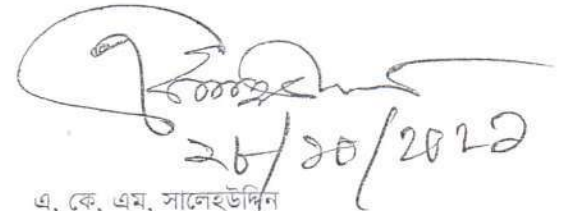 ২৮/১০/২০২১
এ. কে. এম. সালেহউদ্দিন